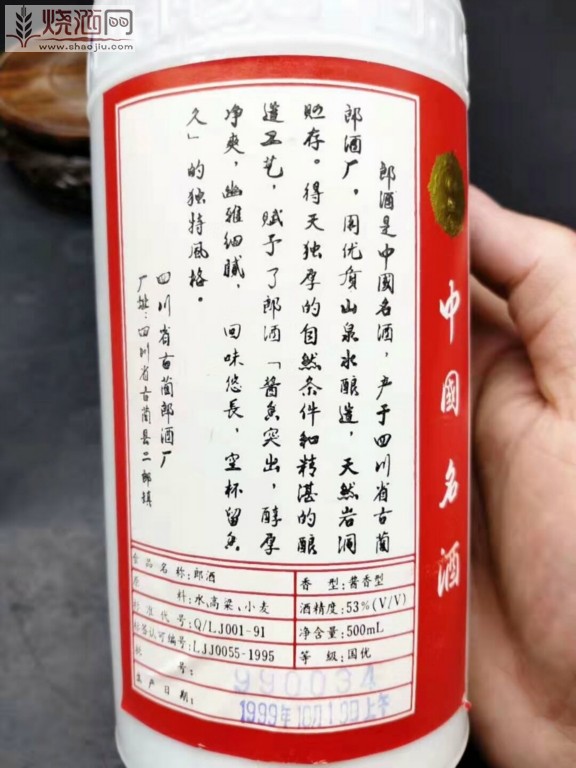 烧酒网
www.shaojiu.com
郎酒是中國名酒，产于四川省古蔺
郎酒厂。用优质山泉水酿造，天然岩洞
贮存。得天独厚的自然条件和精湛的酿
造工艺，赋予了郎酒「酱香突出，醇厚
净爽，幽雅细腻，回味悠長，空杯留香
久」的独特風格。
四川省古蔺郎酒厂
厂址：四川省古蔺县二郎镇
中國名酒
食品名称：郎酒
香型：酱香型
原料：水、高粱、小麦
酒精度：53%(V/V)
标准代号：Q/LJ001-91
净含量：500mL
标签认可编号：LJJ0055-1995
等级：国优
批号：990034
生产日期：1999年10月19日上午